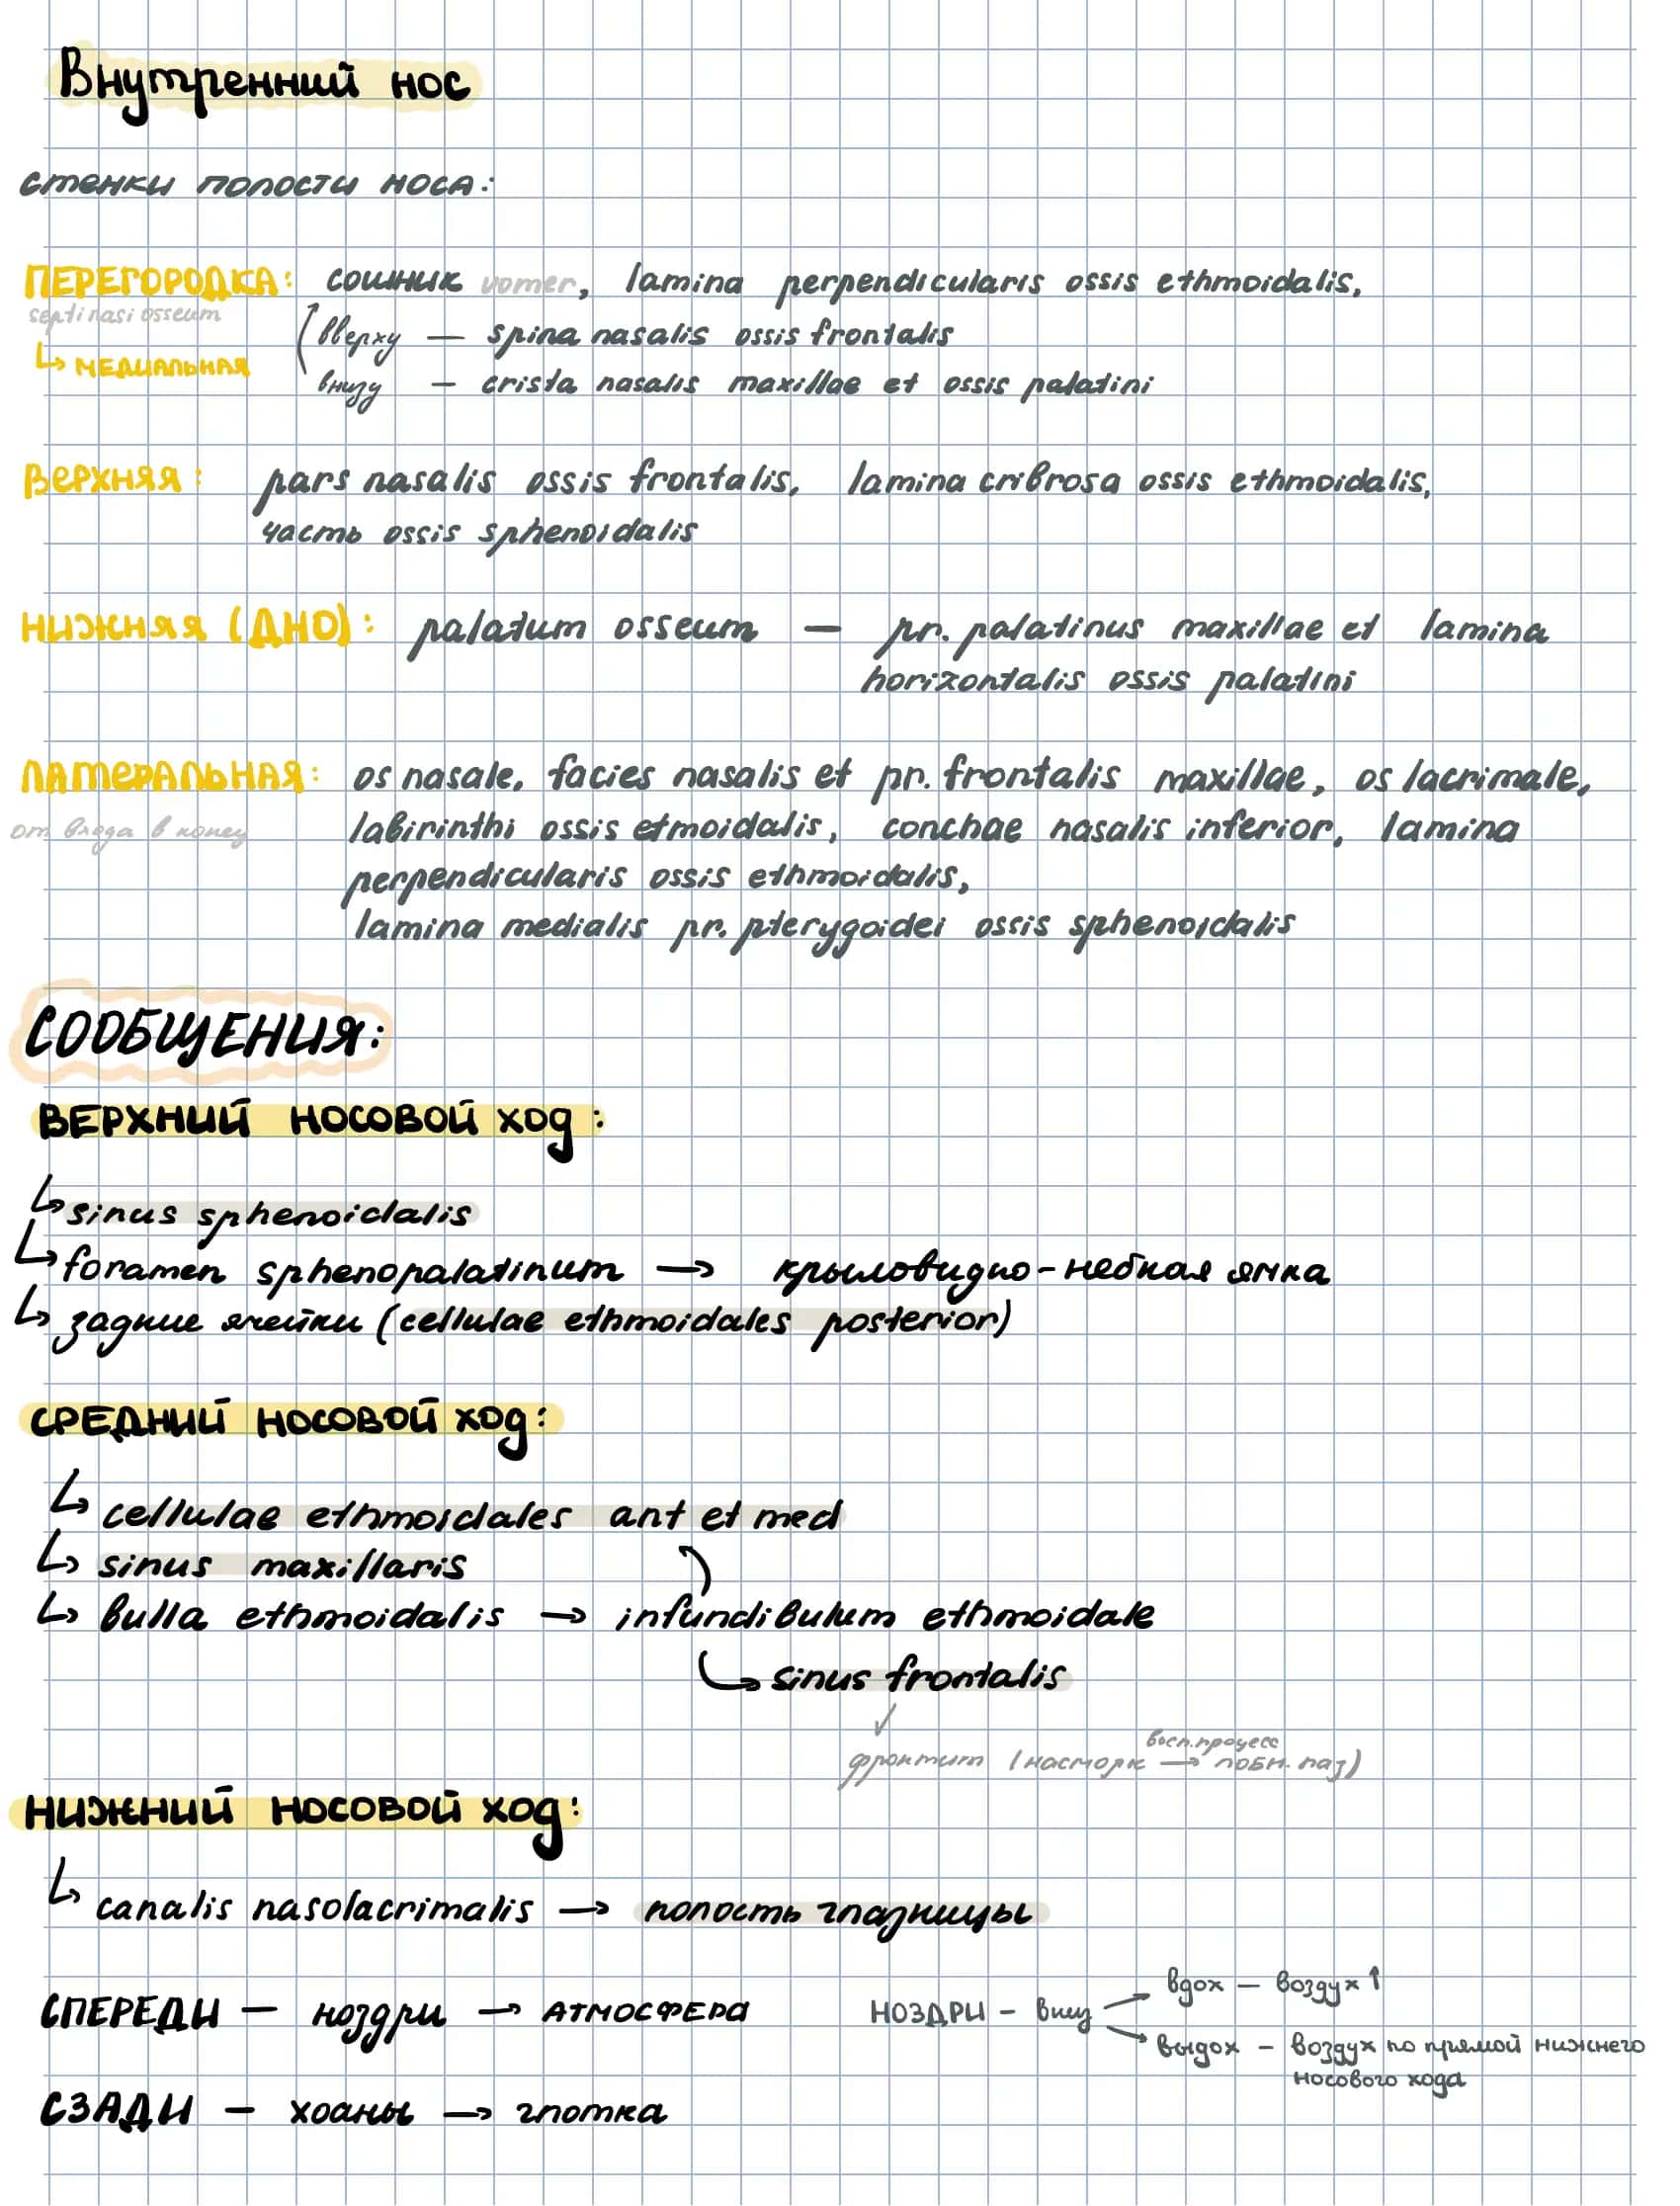 Внутренний нос
стенки полости носа:
ПЕРЕГОРОДКА: сошник vomer, lamina perpendicularis ossis ethmoidalis,
septi nasi osseum
вверху — spina nasalis ossis frontalis
↳ МЕДИАЛЬНАЯ
внизу — crista nasalis maxillae et ossis palatini
ВЕРХНЯЯ: pars nasalis ossis frontalis, lamina cribrosa ossis ethmoidalis,
часть ossis sphenoidalis
НИЖНЯЯ (ДНО): palatum osseum — pr. palatinus maxillae et lamina
horizontalis ossis palatini
ЛАТЕРАЛЬНАЯ: os nasale, facies nasalis et pr. frontalis maxillae, os lacrimale,
от входа в конец labirinthi ossis etmoidalis, conchae nasalis inferior, lamina
perpendicularis ossis ethmoidalis,
lamina medialis pr. pterygoidei ossis sphenoidalis
СООБЩЕНИЯ:
ВЕРХНИЙ НОСОВОЙ ХОД:
↳ sinus sphenoidalis
↳ foramen sphenopalatinum → крыловидно-небная ямка
↳ задние ячейки (cellulae ethmoidales posterior)
СРЕДНИЙ НОСОВОЙ ХОД:
↳ cellulae ethmoidales ant et med
↳ sinus maxillaris
↳ bulla ethmoidalis → infundibulum ethmoidale
↳ sinus frontalis
восп. процесс
фронтит (насморк → лобн. паз)
НИЖНИЙ НОСОВОЙ ХОД:
↳ canalis nasolacrimalis → полость глазницы
вдох — воздух ↑
СПЕРЕДИ — ноздри → АТМОСФЕРА НОЗДРИ — вниз
выдох — воздух по прямой нижнего
носового хода
СЗАДИ — хоаны → глотка